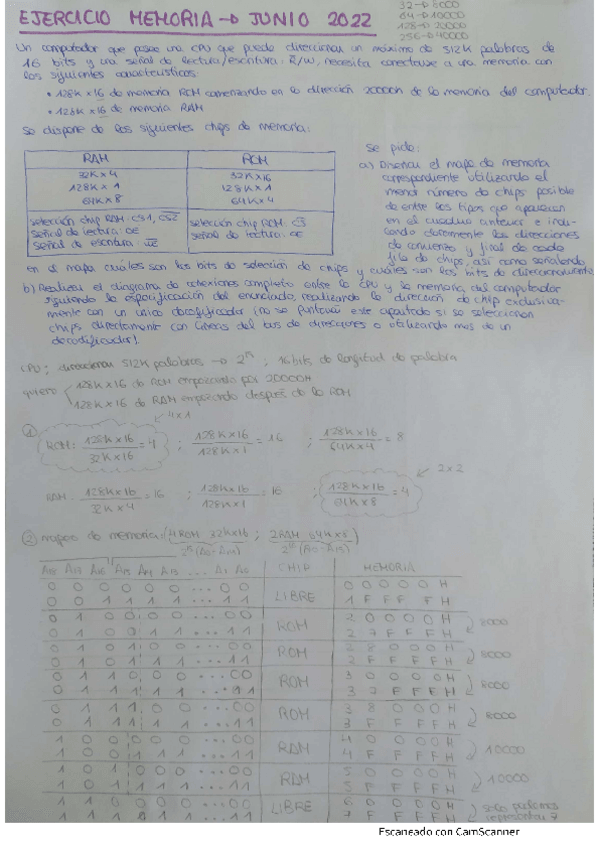 EJERCICIO MEMORIA → JUNIO 2022
32 → 8000
64 → 10000
128 → 20000
256 → 40000
Un computador que posee una CPU que puede direccionar un máximo de 512K palabras de
16 bits y una señal de lectura/escritura: R/W, necesita conectarse a una memoria con
las siguientes características:
• 128K x 16 de memoria ROM comenzando en la dirección 20000H de la memoria del computador.
• 128K x 16 de memoria RAM
Se dispone de los siguientes chips de memoria:
RAM ROM
32K x 4 32K x 16
128K x 1 128K x 1
64K x 8 64K x 4
selección chip RAM: CS1, CS2 selección chip ROM: CS
Señal de lectura: OE Señal de lectura: OE
Señal de escritura: WE
Se pide:
a) Diseñar el mapa de memoria
correspondiente utilizando el
menor número de chips posible
de entre los tipos que aparecen
en el cuadro anterior e indi-
cando claramente las direcciones
de comienzo y final de cada
fila de chips, así como señalando
en el mapa cuáles son los bits de selección de chips y cuáles son los bits de direccionamiento
b) Realizar el diagrama de conexiones completo entre la CPU y la memoria del computador
siguiendo la especificación del enunciado, realizando la dirección de chip exclusiva-
mente con un único decodificador (no se puntuará este apartado si se seleccionan
chips directamente con líneas del bus de direcciones o utilizando más de un
decodificador).
CPU: direccionar 512K palabras → 2ⁿ ; 16 bits de longitud de palabra
quiero 128K x 16 de ROM empezando por 20000H
128K x 16 de RAM empezando después de la ROM
① 4x1
ROM: 128K x 16 / 32K x 16 = 4 ; 128K x 16 / 128K x 1 = 16 ; 128K x 16 / 64K x 4 = 8
2 x 2
RAM: 128K x 16 / 32K x 4 = 16 ; 128K x 16 / 128K x 1 = 16 ; 128K x 16 / 64K x 8 = 4
② mapas de memoria: (4 ROM 32K x 16 ; 2 RAM 64K x 8)
A18 A17 A16 A15 A14 A13 ... A1 A0 CHIP MEMORIA
0 0 0 0 0 0 ... 0 0 LIBRE 0 0 0 0 0 H
0 0 1 1 1 1 ... 1 1 1 F F F F H
0 1 0 0 0 0 ... 0 0 ROM 2 0 0 0 0 H 8000
0 1 0 0 1 1 ... 1 1 2 7 F F F H
0 1 0 1 0 0 ... 0 0 ROM 2 8 0 0 0 H 8000
0 1 0 1 1 1 ... 1 1 2 F F F F H
0 1 1 0 0 0 ... 0 0 ROM 3 0 0 0 0 H 8000
0 1 1 0 1 1 ... 1 1 3 7 F F F H
0 1 1 1 0 0 ... 0 0 ROM 3 8 0 0 0 H 8000
0 1 1 1 1 1 ... 1 1 3 F F F F H
1 0 0 0 0 0 ... 0 0 RAM 4 0 0 0 0 H 10000
1 0 0 1 1 1 ... 1 1 4 F F F F H
1 0 1 0 0 0 ... 0 0 RAM 5 0 0 0 0 H 10000
1 0 1 1 1 1 ... 1 1 5 F F F F H
1 1 0 0 0 0 ... 0 0 LIBRE 6 0 0 0 0 H
1 1 1 1 1 1 ... 1 1 7 F F F F H
Escaneado con CamScanner